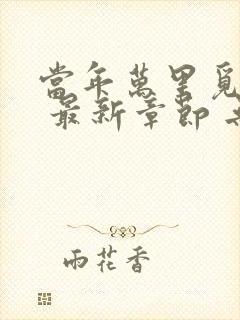 當年萬里覓
最新章節
雨花香